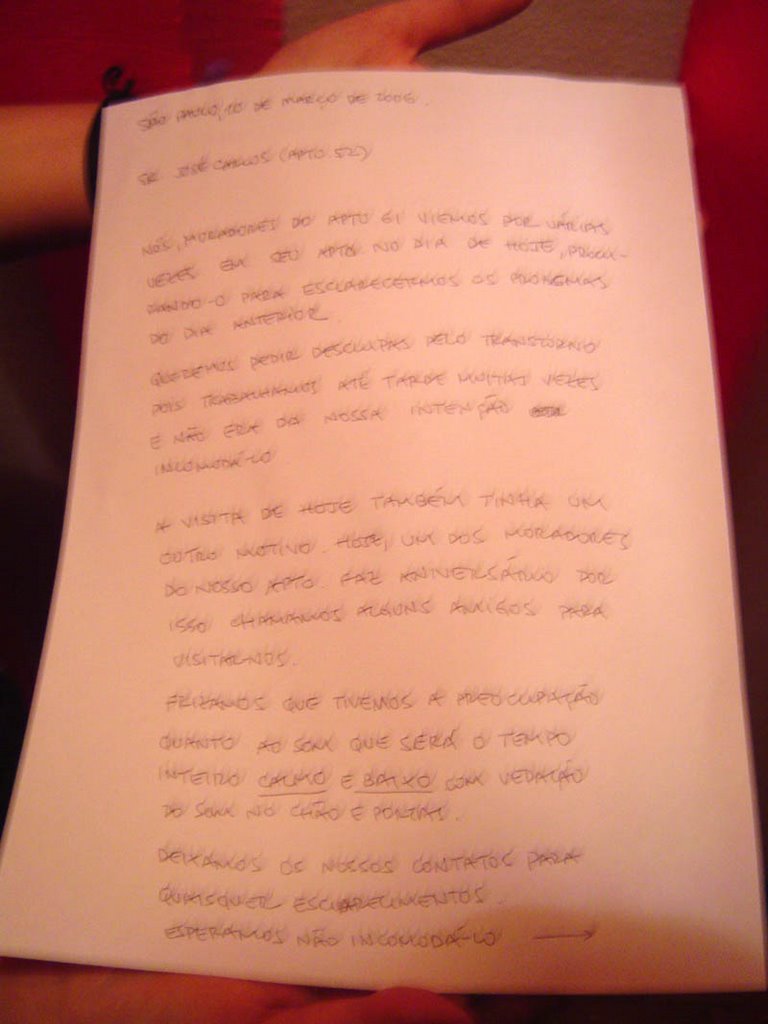 SÃO PAULO, 10 DE MARÇO DE 2006.
SR. JOSÉ CARLOS (APTO 52)
NÓS, MORADORES DO APTO 61 VIEMOS POR VÁRIAS
VEZES EM SEU APTO NO DIA DE HOJE, PROCU-
RANDO-O PARA ESCLARECERMOS OS PROBLEMAS
DO DIA ANTERIOR.
QUEREMOS PEDIR DESCULPAS PELO TRANSTORNO
POIS TRABALHAMOS ATÉ TARDE MUITAS VEZES
E NÃO ERA DA NOSSA INTENÇÃO
INCOMODÁ-LO
A VISITA DE HOJE TAMBÉM TINHA UM
OUTRO MOTIVO. HOJE, UM DOS MORADORES
DO NOSSO APTO. FAZ ANIVERSÁRIO POR
ISSO CHAMAMOS ALGUNS AMIGOS PARA
VISITAR-NOS.
FRIZAMOS QUE TIVEMOS A PREOCUPAÇÃO
QUANTO AO SOM QUE SERÁ O TEMPO
INTEIRO CALMO E BAIXO COM VEDAÇÃO
DO SOM NO CHÃO E PORTAS.
DEIXAMOS OS NOSSOS CONTATOS PARA
QUAISQUER ESCLARECIMENTOS.
ESPERAMOS NÃO INCOMODÁ-LO →